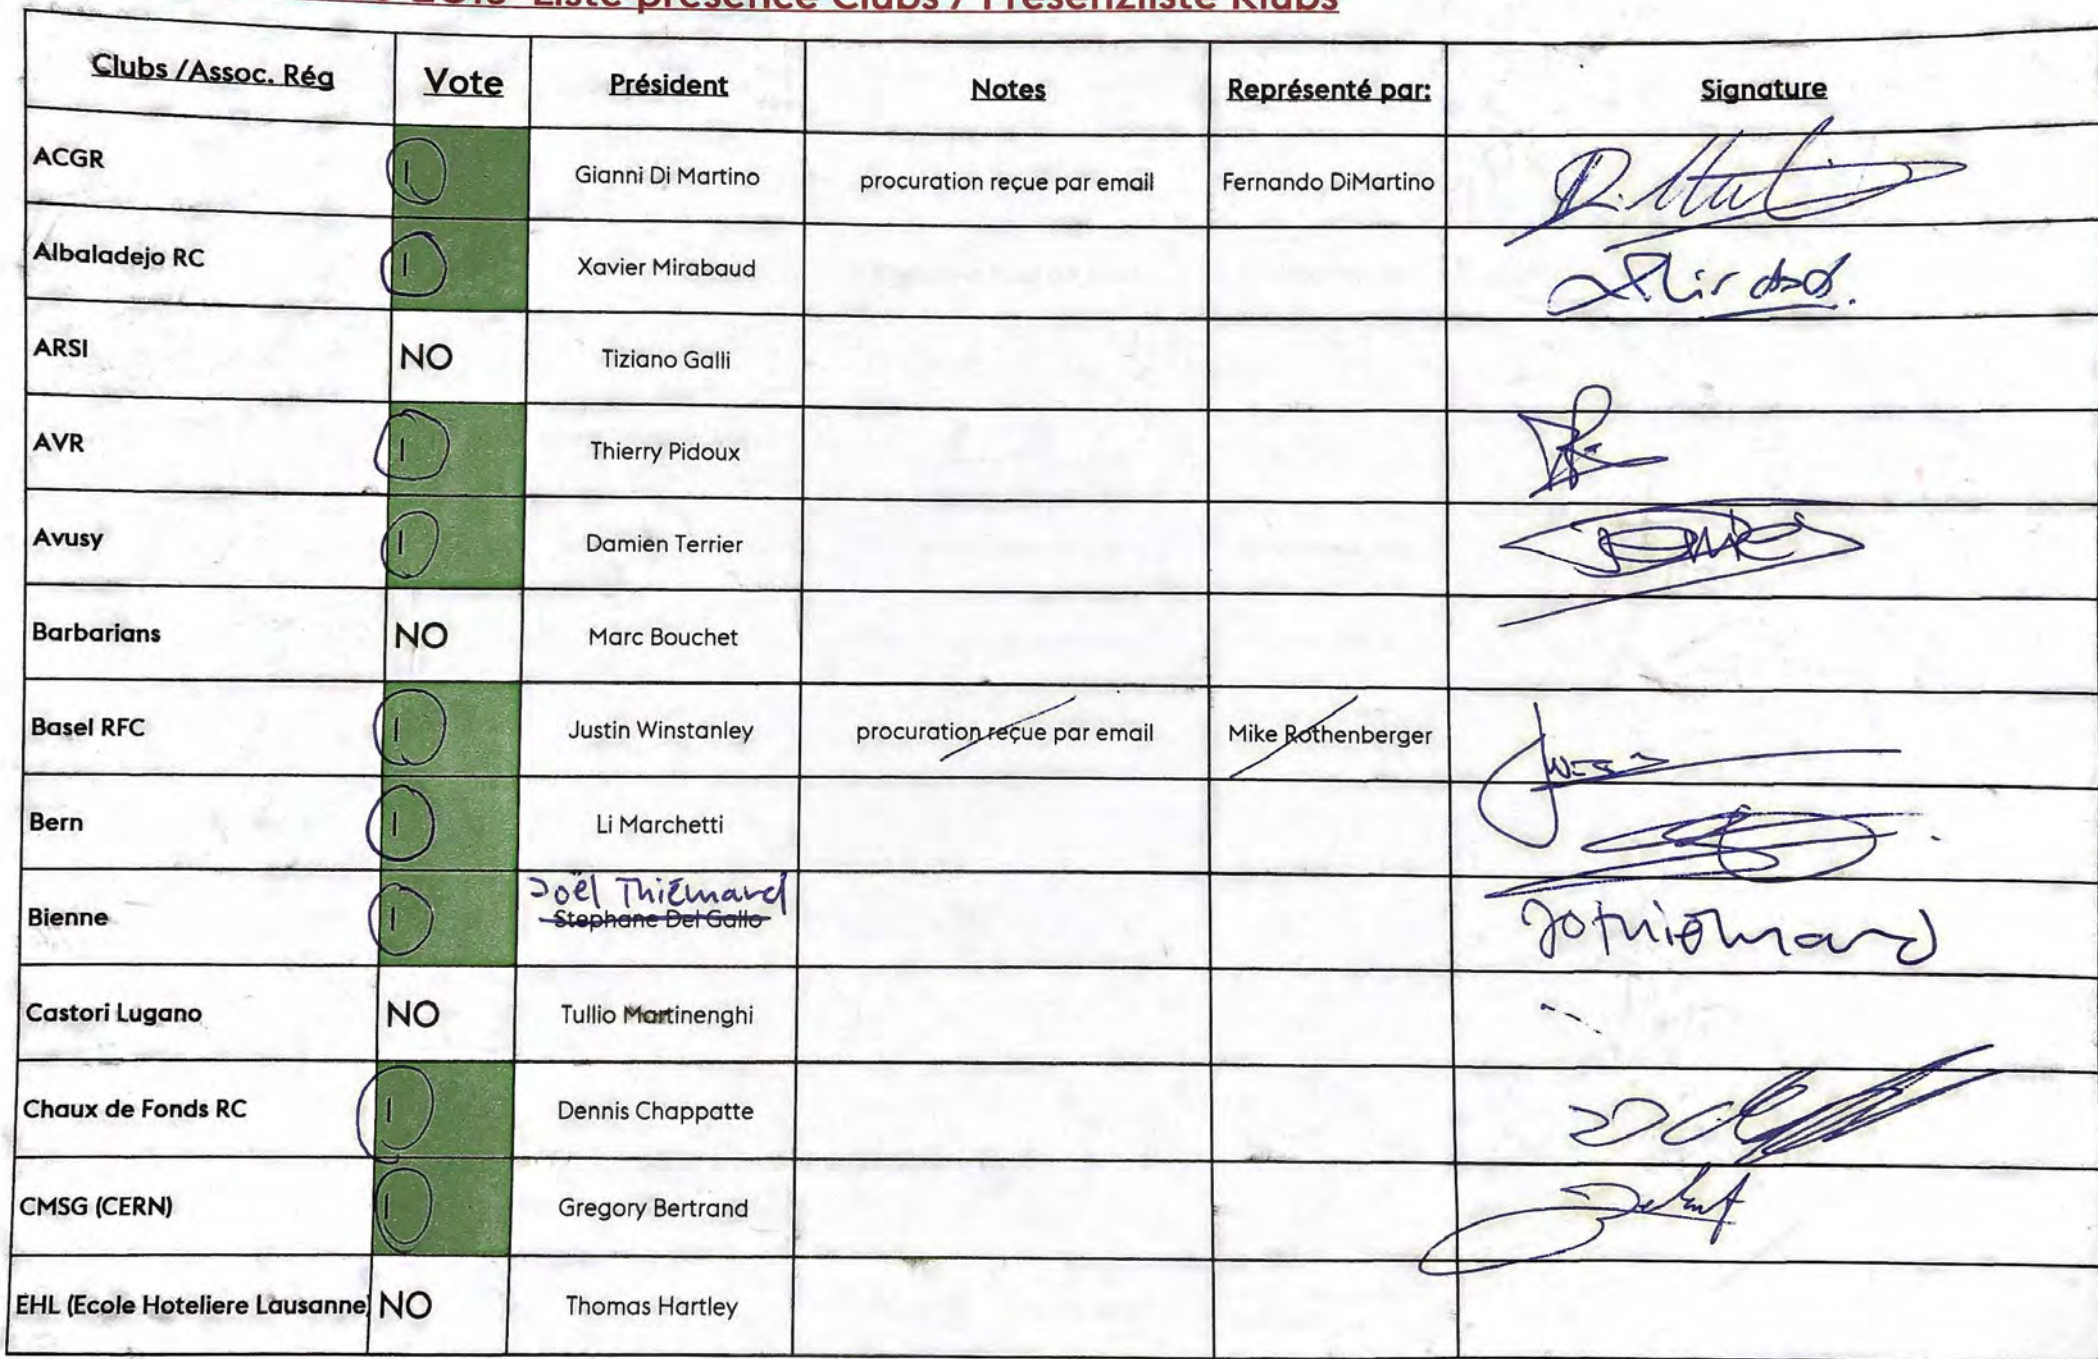 2015 Liste présence Clubs / Präsenzliste Klubs
Clubs /Assoc. Rég Vote Président Notes Représenté par: Signature
ACGR 1 Gianni Di Martino procuration reçue par email Fernando DiMartino
Albaladejo RC 1 Xavier Mirabaud
ARSI NO Tiziano Galli
AVR 1 Thierry Pidoux
Avusy 1 Damien Terrier
Barbarians NO Marc Bouchet
Basel RFC 1 Justin Winstanley procuration reçue par email Mike Rothenberger
Bern 1 Li Marchetti
Joël Thiémard
Bienne 1 Stephane Del Gallo JoThiémard
Castori Lugano NO Tullio Martinenghi
Chaux de Fonds RC 1 Dennis Chappatte
CMSG (CERN) 1 Gregory Bertrand
EHL (Ecole Hoteliere Lausanne) NO Thomas Hartley